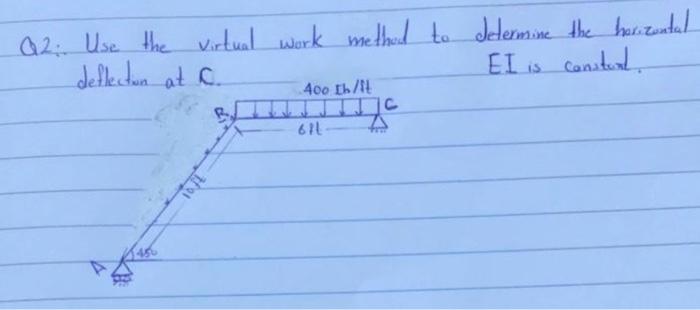 Q2:. Use the virtual work method to determine the horizontal
deflection at C. EI is constant.
400 Ib/ft
B C
6ft
10ft
45°
A